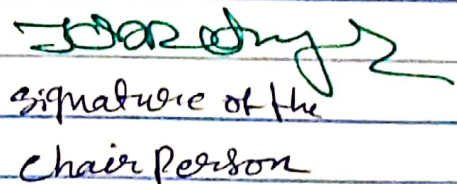 signature of the
chair person